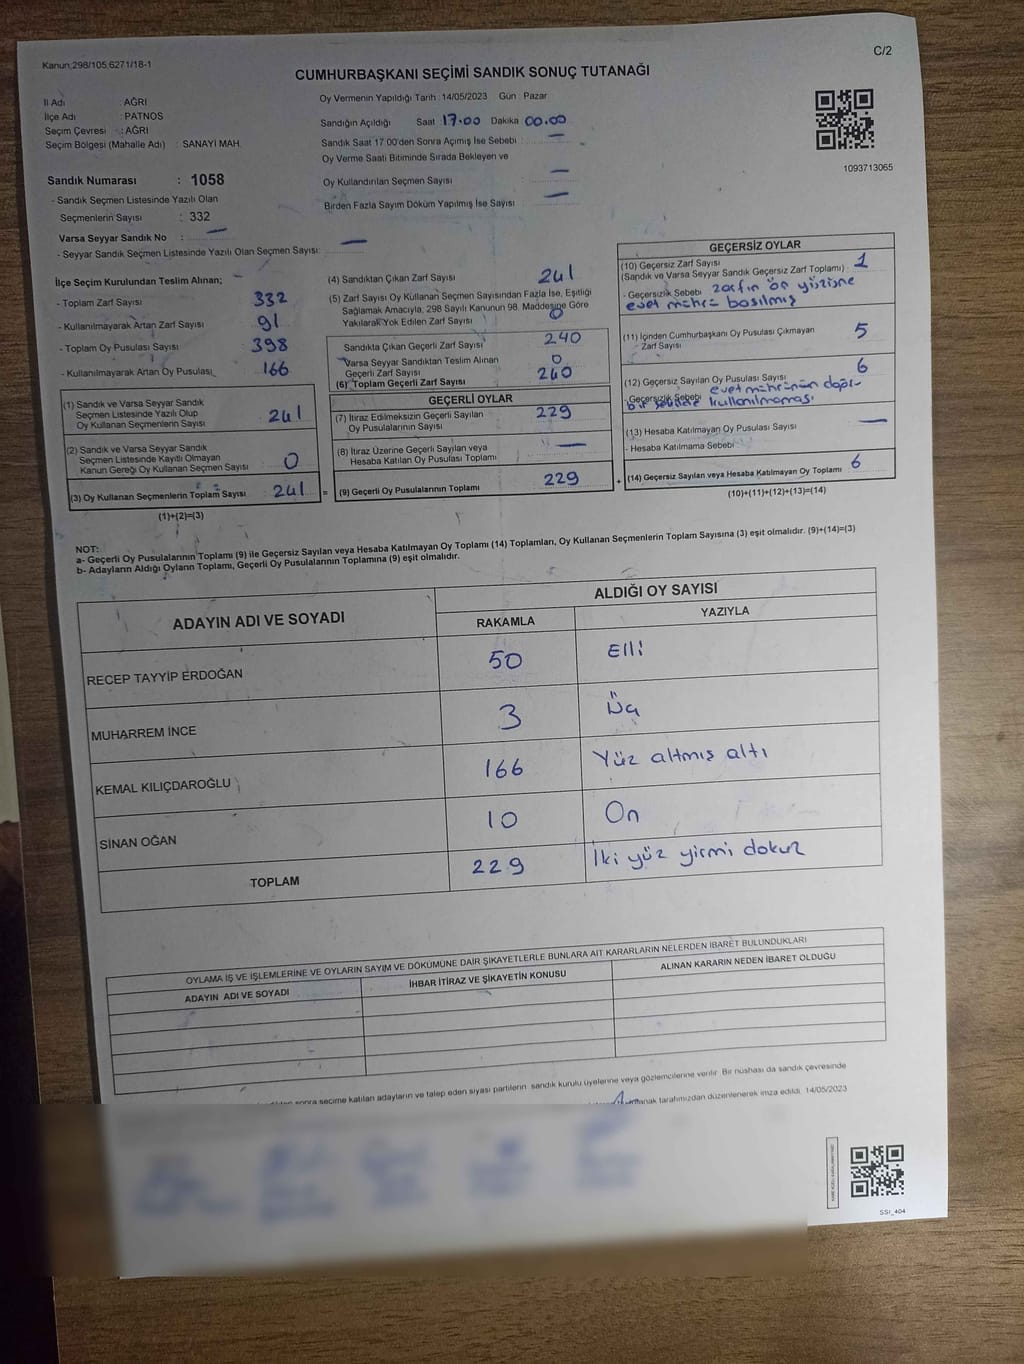 Kanun:298/105,6271/18-1
C/2
CUMHURBAŞKANI SEÇİMİ SANDIK SONUÇ TUTANAĞI
İl Adı : AĞRI
İlçe Adı : PATNOS
Seçim Çevresi : AĞRI
Seçim Bölgesi (Mahalle Adı) : SANAYİ MAH.
Oy Vermenin Yapıldığı Tarih :14/05/2023 Gün Pazar
Sandığın Açıldığı Saat 17.00 Dakika 00.00
Sandık Saat 17:00'den Sonra Açımış İse Sebebi : —
Oy Verme Saati Bitiminde Sırada Bekleyen ve
Oy Kullandırılan Seçmen Sayısı : —
Birden Fazla Sayım Döküm Yapılmış İse Sayısı : —
1093713065
Sandık Numarası : 1058
- Sandık Seçmen Listesinde Yazılı Olan
Seçmenlerin Sayısı : 332
Varsa Seyyar Sandık No : —
- Seyyar Sandık Seçmen Listesinde Yazılı Olan Seçmen Sayısı: —
İlçe Seçim Kurulundan Teslim Alınan;
- Toplam Zarf Sayısı 332
- Kullanılmayarak Artan Zarf Sayısı 91
- Toplam Oy Pusulası Sayısı 398
- Kullanılmayarak Artan Oy Pusulası 166
(1) Sandık ve Varsa Seyyar Sandık
Seçmen Listesinde Yazılı Olup
Oy Kullanan Seçmenlerin Sayısı 241
(2) Sandık ve Varsa Seyyar Sandık
Seçmen Listesinde Kayıtlı Olmayan
Kanun Gereği Oy Kullanan Seçmen Sayısı 0
(3) Oy Kullanan Seçmenlerin Toplam Sayısı 241 =
(1)+(2)=(3)
(4) Sandıktan Çıkan Zarf Sayısı 241
(5) Zarf Sayısı Oy Kullanan Seçmen Sayısından Fazla İse, Eşitliği
Sağlamak Amacıyla, 298 Sayılı Kanunun 98. Maddesine Göre
Yakılarak Yok Edilen Zarf Sayısı 0
Sandıkta Çıkan Geçerli Zarf Sayısı 240
Varsa Seyyar Sandıktan Teslim Alınan
Geçerli Zarf Sayısı 0
(6) Toplam Geçerli Zarf Sayısı 240
GEÇERLİ OYLAR
(7) İtiraz Edilmeksizin Geçerli Sayılan
Oy Pusulalarının Sayısı 229
(8) İtiraz Üzerine Geçerli Sayılan veya
Hesaba Katılan Oy Pusulası Toplamı —
(9) Geçerli Oy Pusulalarının Toplamı 229 +
GEÇERSİZ OYLAR
(10) Geçersiz Zarf Sayısı
(Sandık ve Varsa Seyyar Sandık Geçersiz Zarf Toplamı) : 1
- Geçersizlik Sebebi zarfın ön yüzüne
evet mührü basılmış
(11) İçinden Cumhurbaşkanı Oy Pusulası Çıkmayan
Zarf Sayısı 5
(12) Geçersiz Sayılan Oy Pusulası Sayısı 6
- Geçersizlik Sebebi evet mührünün doğru
bir şekilde kullanılmaması
(13) Hesaba Katılmayan Oy Pusulası Sayısı —
- Hesaba Katılmama Sebebi
(14) Geçersiz Sayılan veya Hesaba Katılmayan Oy Toplamı 6
(10)+(11)+(12)+(13)=(14)
NOT:
a- Geçerli Oy Pusulalarının Toplamı (9) ile Geçersiz Sayılan veya Hesaba Katılmayan Oy Toplamı (14) Toplamları, Oy Kullanan Seçmenlerin Toplam Sayısına (3) eşit olmalıdır. (9)+(14)=(3)
b- Adayların Aldığı Oyların Toplamı, Geçerli Oy Pusulalarının Toplamına (9) eşit olmalıdır.
ADAYIN ADI VE SOYADI
ALDIĞI OY SAYISI
RAKAMLA YAZIYLA
RECEP TAYYİP ERDOĞAN 50 Elli
MUHARREM İNCE 3 Üç
KEMAL KILIÇDAROĞLU 166 Yüz altmış altı
SİNAN OĞAN 10 On
TOPLAM 229 İki yüz yirmi dokuz
OYLAMA İŞ VE İŞLEMLERİNE VE OYLARIN SAYIM VE DÖKÜMÜNE DAİR ŞİKAYETLERLE BUNLARA AİT KARARLARIN NELERDEN İBARET BULUNDUKLARI
ADAYIN ADI VE SOYADI İHBAR İTİRAZ VE ŞİKAYETİN KONUSU ALINAN KARARIN NEDEN İBARET OLDUĞU
sonra seçime katılan adayların ve talep eden siyasi partilerin sandık kurulu üyelerine veya gözlemcilerine verilir. Bir nüshası da sandık çevresinde
tarafımızdan düzenlenerek imza edildi. 14/05/2023
SSI_404